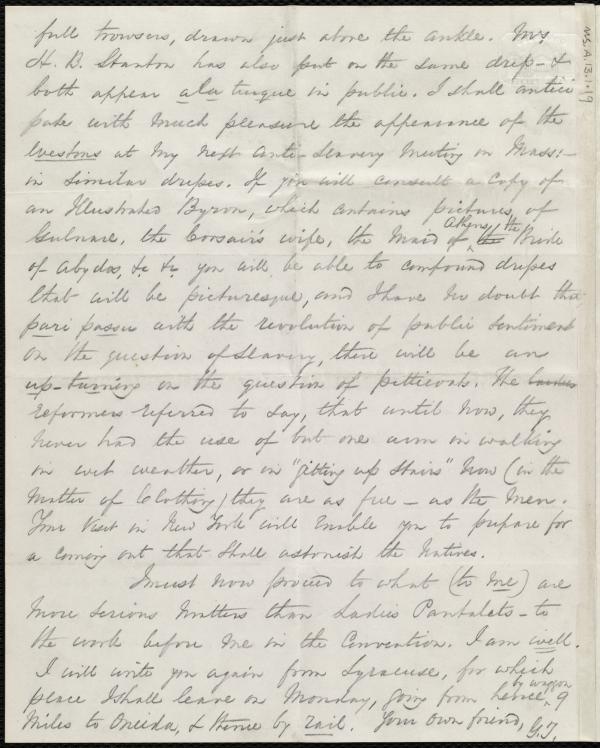 full trowsers, drawn just above the ankle. Mrs.
H. B. Stanton has also put on the same dress – &
both appear a la turque in public. I shall antici
pate with much pleasure the appearance of the
Westons at my next Anti-Slavery Meeting in Mass: –
in similar dresses. If you will consult a copy of
an Illustrated Byron, which contains pictures, of
Gulnare, the Corsair's wife, the Maid of Athens, the Bride
of Abydos, &c &c you will be able to compound dresses
that will be picturesque, and I have no doubt that
pari passu with the revolution of public sentiment
on the question of Slavery, there will be an
up-turning on the question of petticoats. The Ladies
reformers referred to say, that until now, they
never had the use of but one arm in walking
in wet weather, or in "gitting up stairs" Now (in the
matter of Clothing) they are as free – as the men.
Your visit in New York will enable you to prepare for
a coming out that shall astonish the Natives.
I must now proceed to what (to me) are
more serious matters than Ladies Pantalets – to
the work before me in the Convention. I am well.
I will write you again from Syracuse, for which
place I shall leave on Monday, going from hence, by waggon 9
miles to Oneida, & thence by rail. Your own friend, G.T.
MS.A.1.